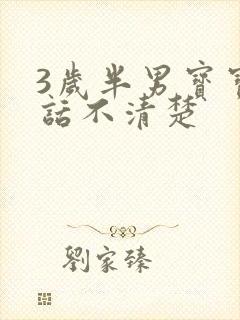 3歲半男寶寶
話不清楚
劉家臻